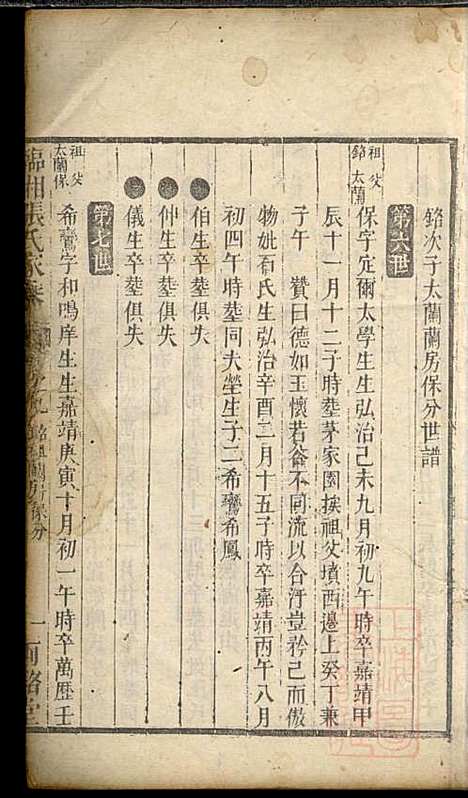 銘次子太蘭蘭房保分世譜
第六世
祖父
銘太蘭
保字定爾太學生生弘治己未九月初九午時卒嘉靖甲
辰十一月十二子時葬茅家園挨祖父墳西邊上癸丁兼
子午 贊曰德如玉懷若谷不同流以合汙豈矜己而傲
物妣石氏生弘治辛酉二月十五子時卒嘉靖丙午八月
初四午時葬同夫塋生子二希鸞希鳳
伯生卒葬俱失
仲生卒葬俱失
儀生卒葬俱失
第七世
祖父
太蘭保
希鸞字和鳴庠生生嘉靖庚寅十月初一午時卒萬歷壬
臨湘張氏家乘
銘祖蘭房保分